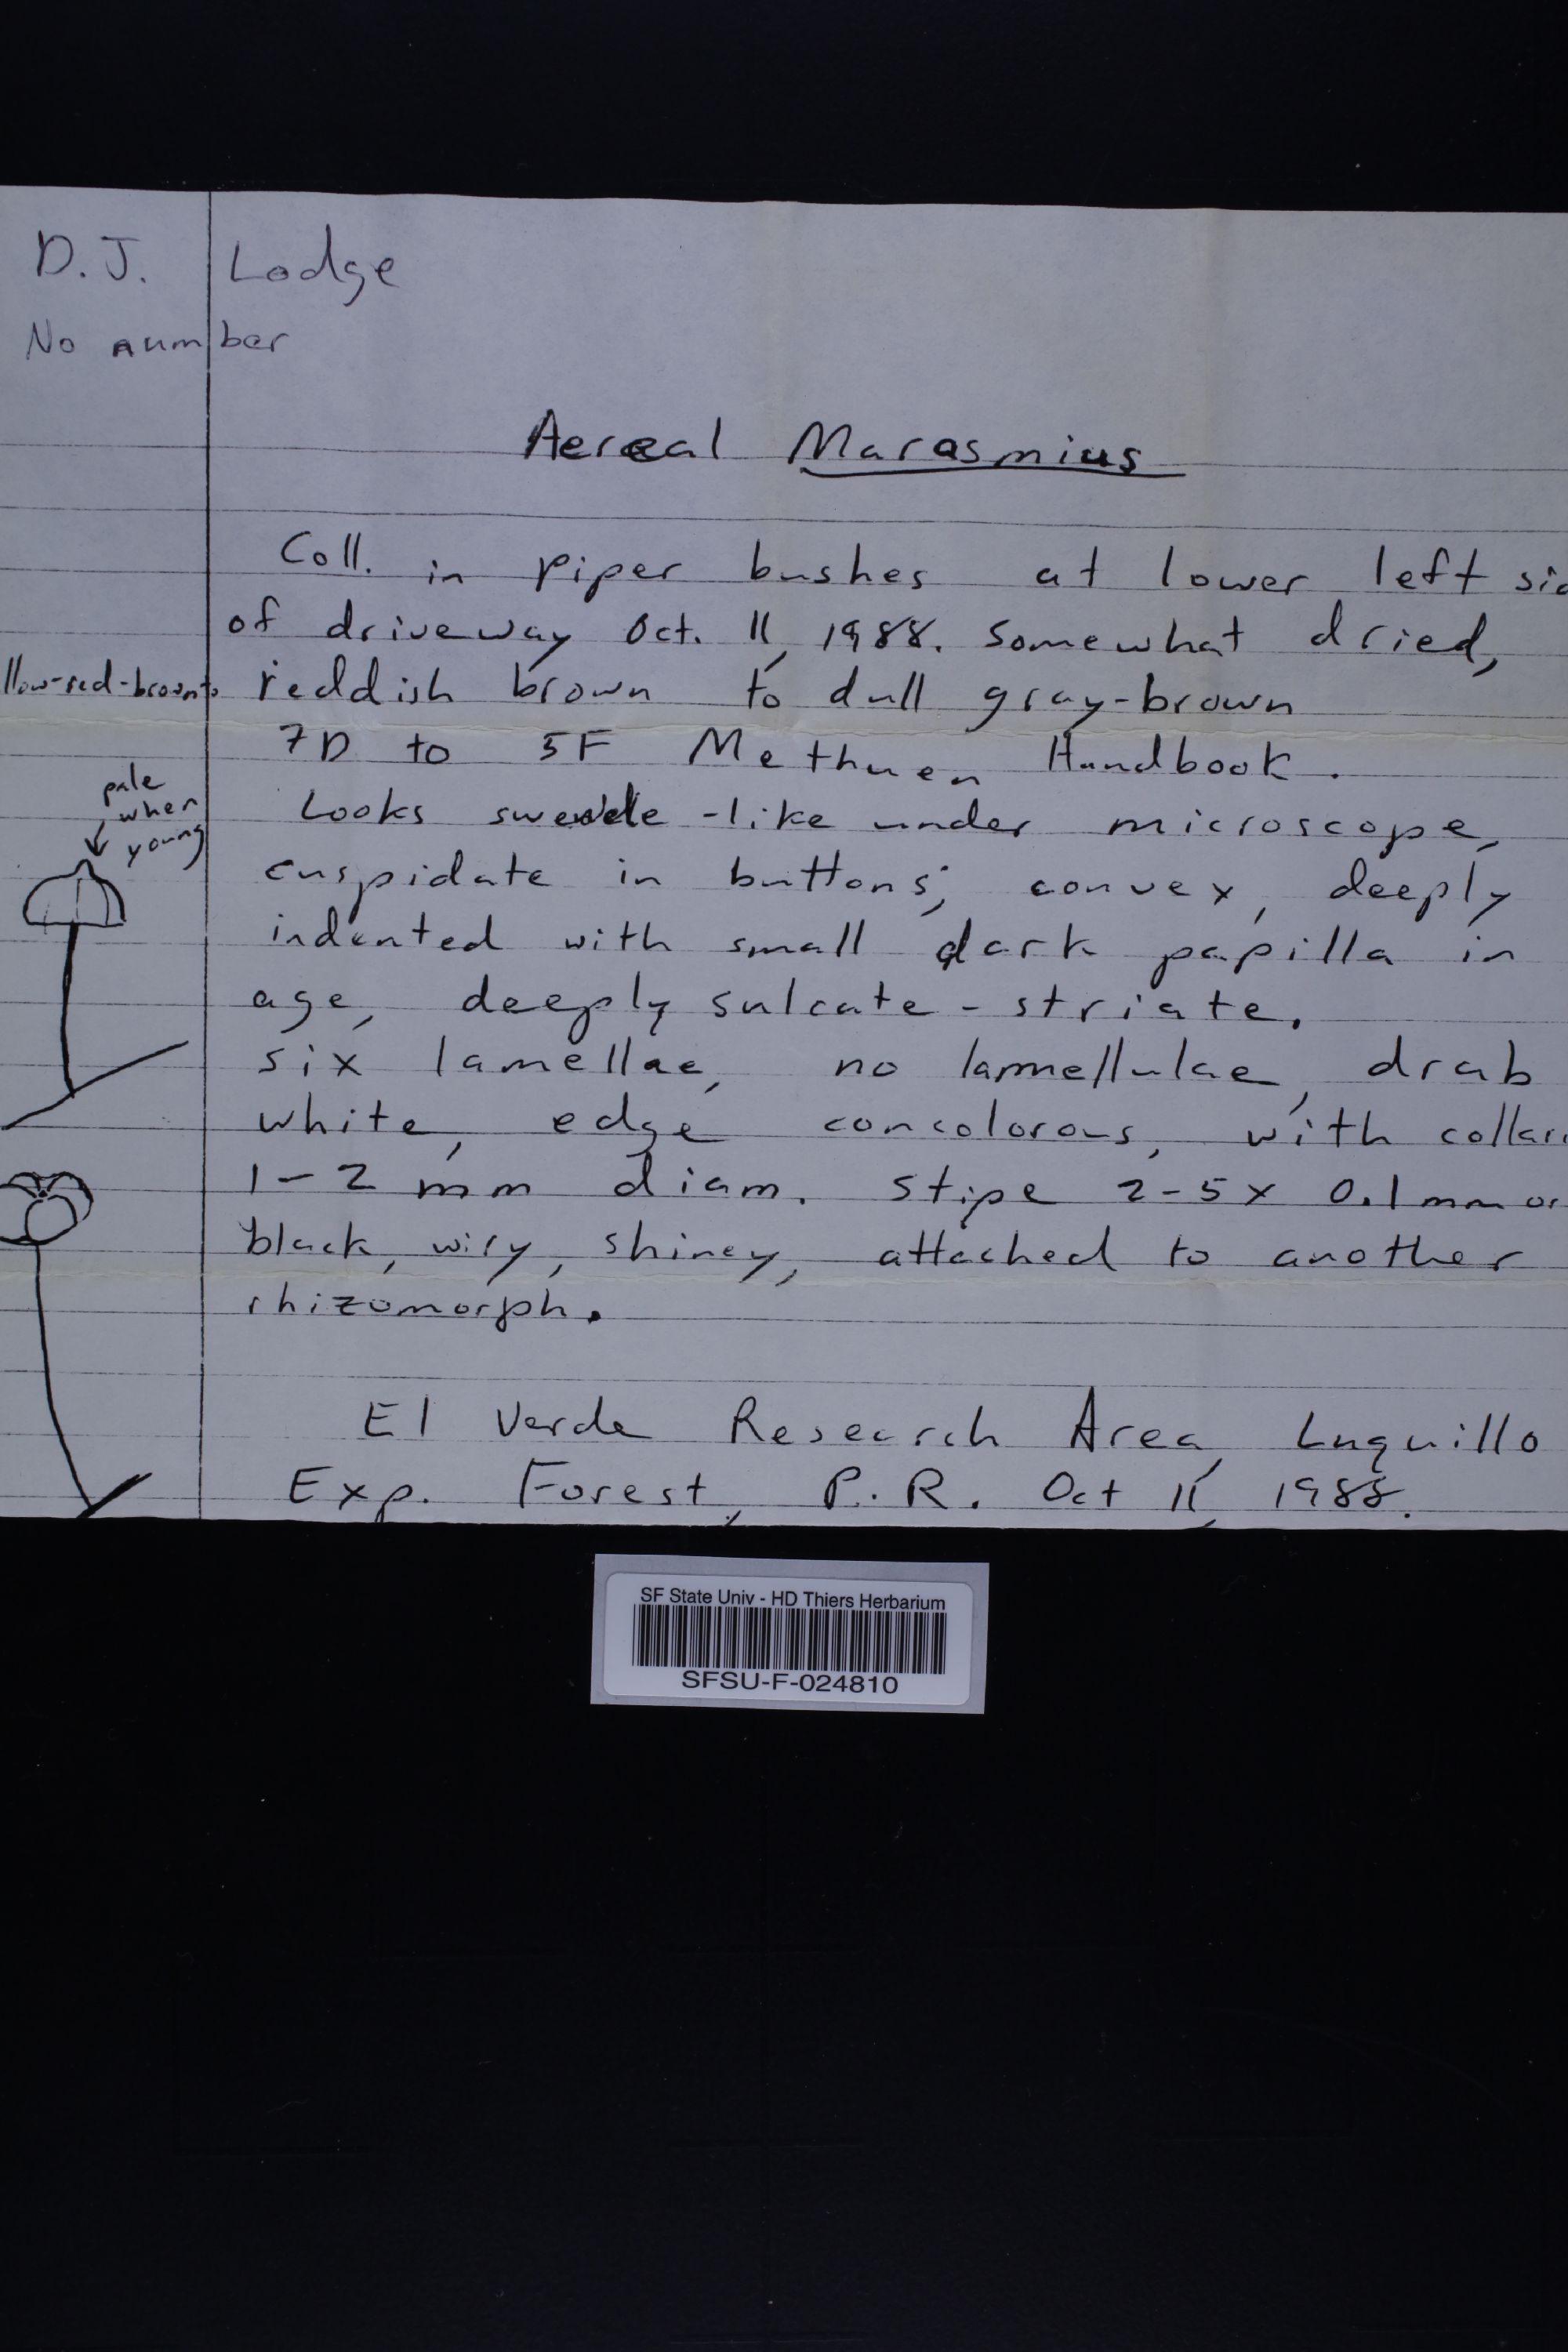 D.J. Lodge
No number
Aereal Marasmius
Coll. in Piper bushes at lower left sid
of driveway Oct. 11, 1988. Somewhat dried,
llow-red-brown to reddish brown to dull gray-brown
7D to 5F Methuen Handbook.
pale
when
young
Looks swede-like under microscope,
cuspidate in buttons; convex, deeply
indented with small dark papilla in
age, deeply sulcate-striate.
six lamellae, no lammellulae, drab
white, edge concolorous, with collar
1-2 mm diam. Stipe 2-5 x 0.1 mm or
black, wiry, shiney, attached to another
rhizomorph.
El Verde Research Area, Luquillo
Exp. Forest, P.R. Oct 11, 1988.
SF State Univ - HD Thiers Herbarium
SFSU-F-024810